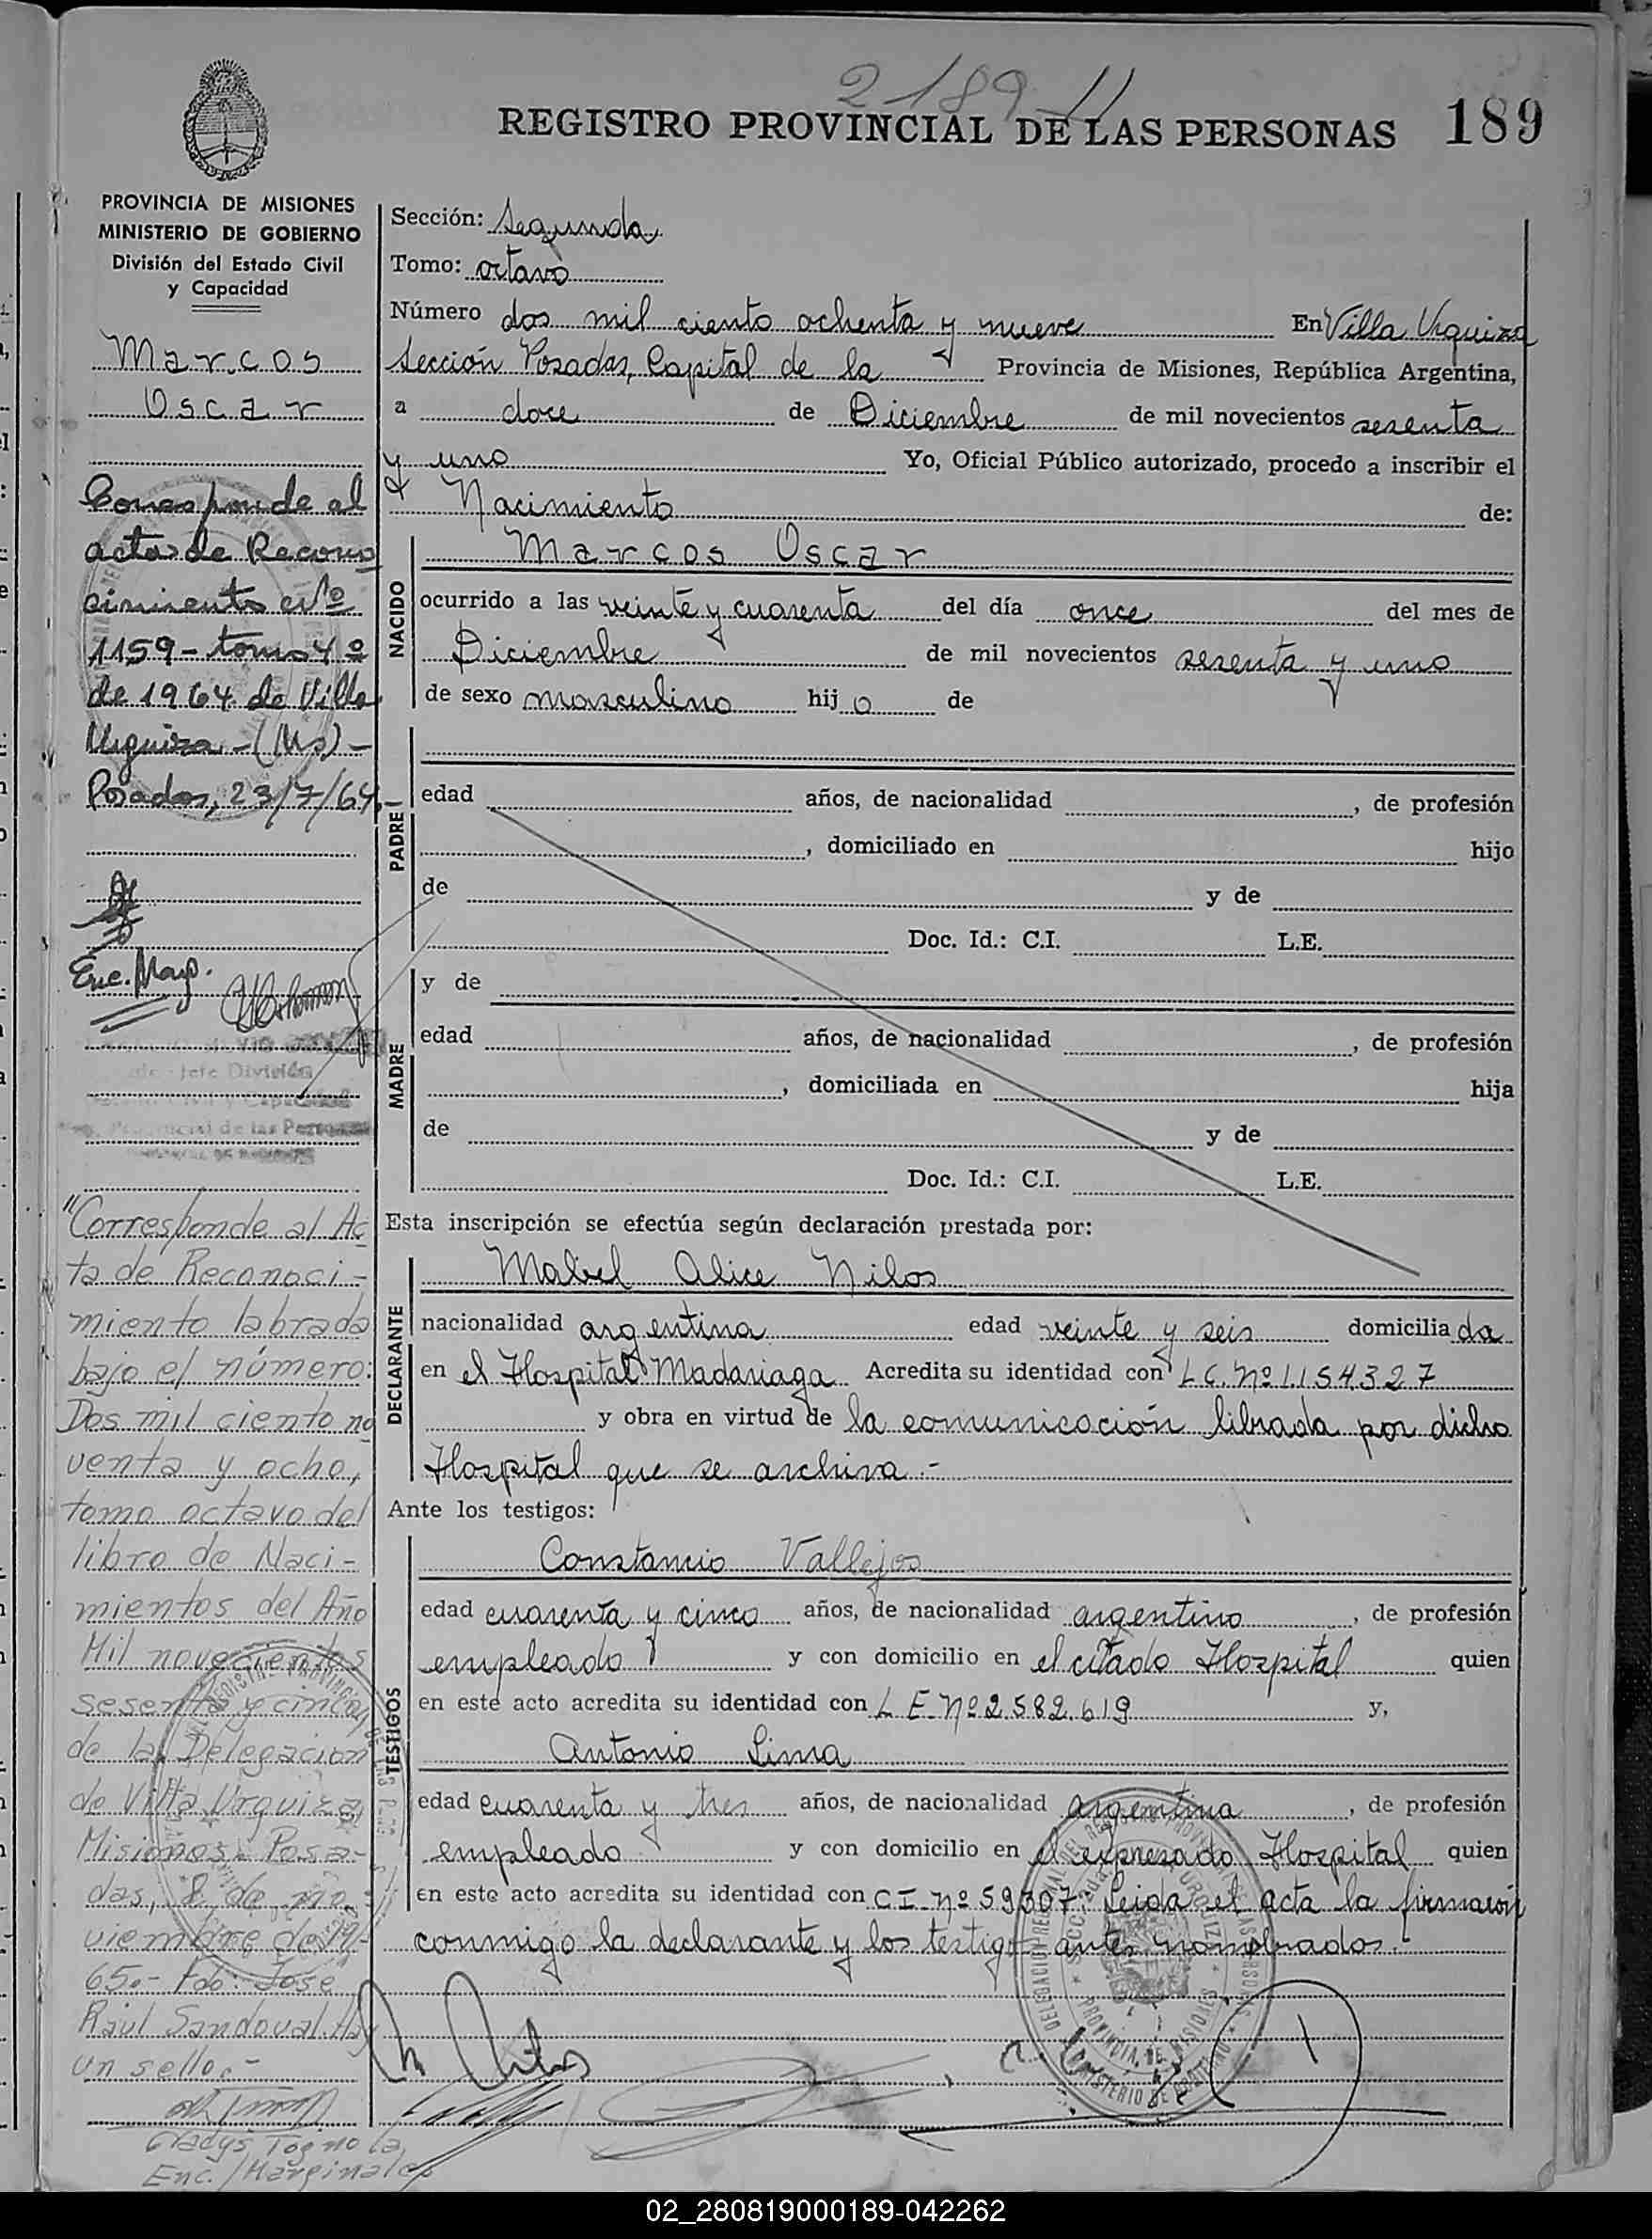 2189-//
REGISTRO PROVINCIAL DE LAS PERSONAS 189
PROVINCIA DE MISIONES
MINISTERIO DE GOBIERNO
División del Estado Civil
y Capacidad
Marcos
Oscar
Corresponde al
acta de Recono
cimiento Nº
1159 - tomo 4º
de 1964 de Villa
Urquiza - (Ms) -
Posadas, 23/7/64.-
Enc. Marg.
Jefe División
de las Personas
"Corresponde al Ac
ta de Reconoci-
miento labrada
bajo el número:
Dos mil ciento no
venta y ocho,
tomo octavo del
libro de Naci-
mientos del Año
Mil novecientos
sesenta y cinco
de la Delegacion
de Villa Urquiza,
Misiones. Posa-
das, 8 de no-
viembre de 19-
65.- Fdo: Jose
Raúl Sandoval. Hay
un sello.-
Gladys Tognola
Enc./Marginales
Sección: Segunda
Tomo: octavo
Número dos mil ciento ochenta y nueve En Villa Urquiza
Sección Posadas, Capital de la Provincia de Misiones, República Argentina,
a doce de Diciembre de mil novecientos sesenta
y uno Yo, Oficial Público autorizado, procedo a inscribir el
Nacimiento de:
Marcos Oscar
NACIDO
ocurrido a las veinte y cuarenta del día once del mes de
Diciembre de mil novecientos sesenta y uno
de sexo masculino hijo de
PADRE
edad años, de nacionalidad , de profesión
, domiciliado en hijo
de y de
Doc. Id.: C.I. L.E.
y de
MADRE
edad años, de nacionalidad , de profesión
, domiciliada en hija
de y de
Doc. Id.: C.I. L.E.
Esta inscripción se efectúa según declaración prestada por:
Mabel Alice Nilos
DECLARANTE
nacionalidad argentina edad veinte y seis domiciliada
en el Hospital Madariaga Acredita su identidad con L C. Nº 1.154.327
y obra en virtud de la comunicación librada por dicho
Hospital que se archiva.-
Ante los testigos:
Constancio Vallejos
TESTIGOS
edad cuarenta y cinco años, de nacionalidad argentino, de profesión
empleado y con domicilio en el citado Hospital quien
en este acto acredita su identidad con L E. Nº 2.582.619 y,
Antonio Lima
edad cuarenta y tres años, de nacionalidad argentina, de profesión
empleado y con domicilio en el expresado Hospital quien
en este acto acredita su identidad con C I. Nº 59307. Leida el acta la firmaron
conmigo la declarante y los testigos antes nombrados.-
02_280819000189-042262